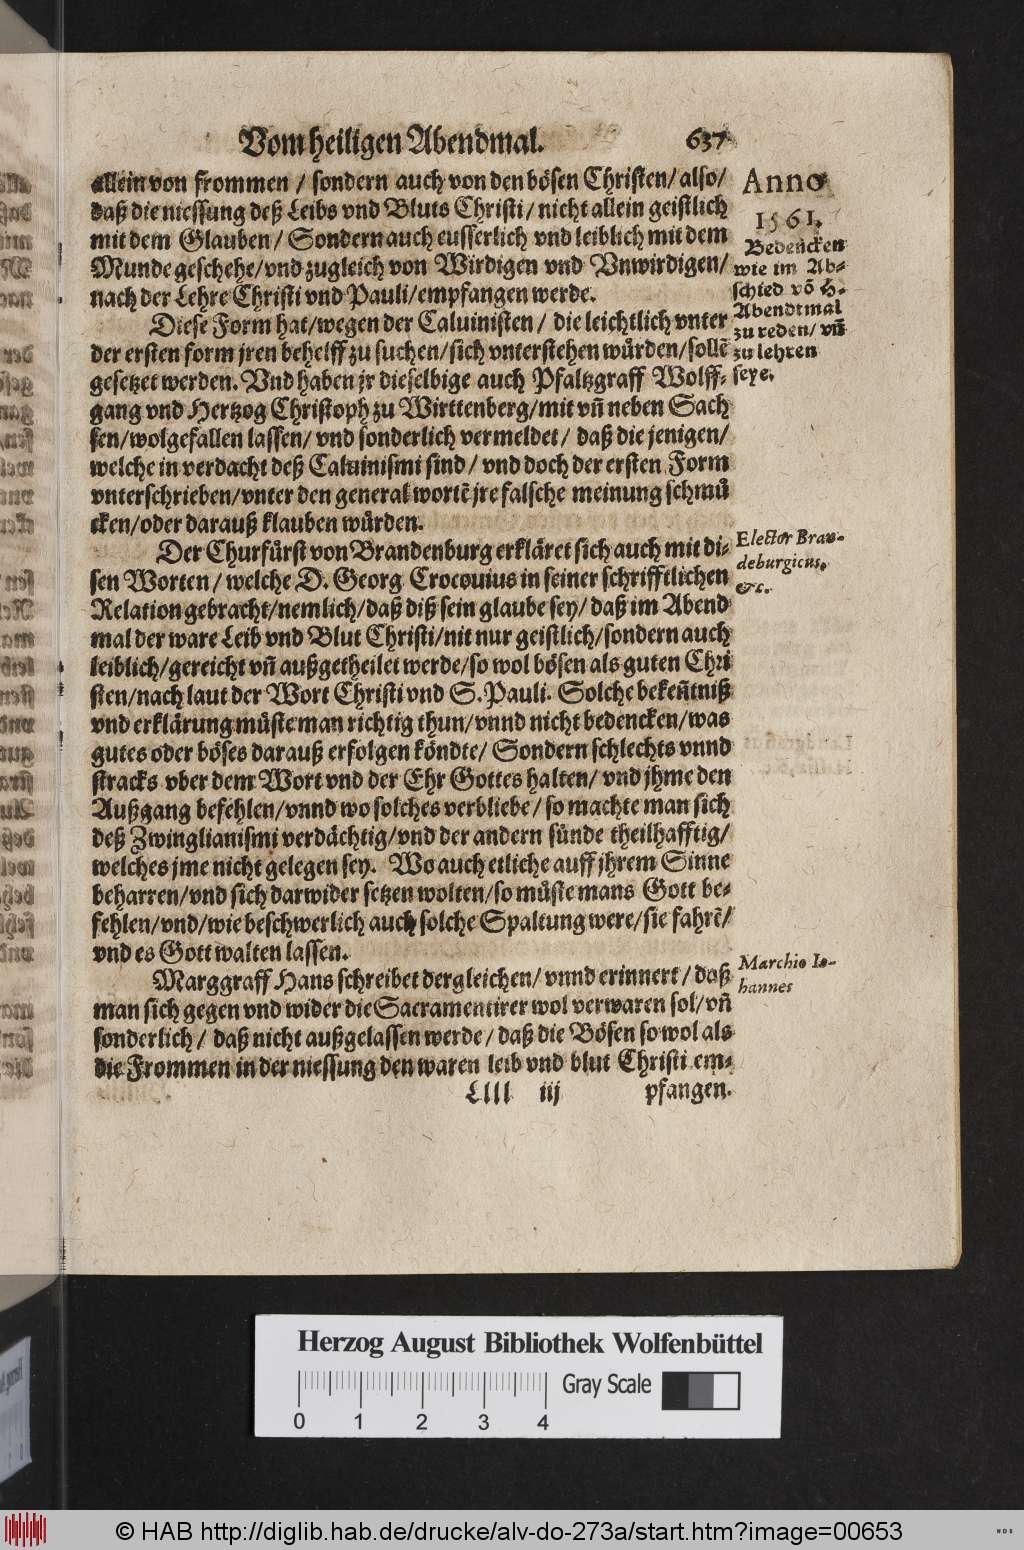 Vom heiligen Abendmal. 637
allein von frommen / sondern auch von den bösen Christen/ also/
daß die niessung deß Leibs vnd Bluts Christi / nicht allein geistlich
mit dem Glauben / Sondern auch eusserlich vnd leiblich mit dem
Munde geschehe/vnd zugleich von Wirdigen vnd Vnwirdigen/
nach der Lehre Christi vnd Pauli/empfangen werde.
Diese Form hat/wegen der Caluinisten / die leichtlich vnter
der ersten form jren behelff zu suchen/sich vnterstehen würden/sollē
gesetzet werden. Vnd haben jr dieselbige auch Pfaltzgraff Wolff-
gang vnd Hertzog Christoph zu Wirttenberg/mit vñ neben Sach
sen/wolgefallen lassen/ vnd sonderlich vermeldet / daß die jenigen/
welche in verdacht deß Caluinismi sind / vnd doch der ersten Form
vnterschrieben/vnter den general wortē jre falsche meinung schmü
cken/oder darauß klauben würden.
Der Churfürst von Brandenburg erkläret sich auch mit di-
sen Worten / welche D. Georg Crocouius in seiner schrifftlichen
Relation gebracht/nemlich/daß diß sein glaube sey/ daß im Abend
mal der ware Leib vnd Blut Christi/nit nur geistlich/sondern auch
leiblich/gereicht vñ außgetheilet werde/so wol bösen als guten Chri
sten/nach laut der Wort Christi vnd S. Pauli. Solche bekeñtniß
vnd erklärung müste man richtig thun/vnnd nicht bedencken/was
gutes oder böses darauß erfolgen köndte/ Sondern schlechts vnnd
stracks vber dem Wort vnd der Ehr Gottes halten/ vnd jhme den
Außgang befehlen/vnnd wo solches verbliebe / so machte man sich
deß Zwinglianismi verdächtig/vnd der andern sünde theilhafftig/
welches jme nicht gelegen sey. Wo auch etliche auff jhrem Sinne
beharren/vnd sich darwider setzen wolten/so müste mans Gott be-
fehlen/vnd/wie beschwerlich auch solche Spaltung were/sie fahrē/
vnd es Gott walten lassen.
Marggraff Hans schreibet dergleichen/ vnnd erinnert / daß
man sich gegen vnd wider die Sacramentirer wol verwaren sol/vñ
sonderlich / daß nicht außgelassen werde / daß die Bösen so wol als
die Frommen in der niessung den waren leib vnd blut Christi em-
Llll iij pfangen.
Anno
1561.
Bedencken
wie im Ab-
schied vō H.
Abendtmal
zu reden/ vñ
zu lehren
seye.
Elector Bran-
deburgicus,
&c.
Marchio Io-
hannes
Herzog August Bibliothek Wolfenbüttel
0 1 2 3 4
Gray Scale
© HAB http://diglib.hab.de/drucke/alv-do-273a/start.htm?image=00653